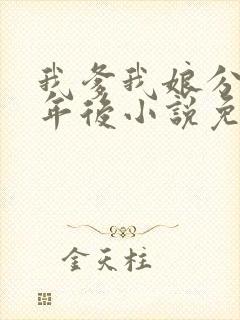 我爹我娘分
年後小說免
金天柱